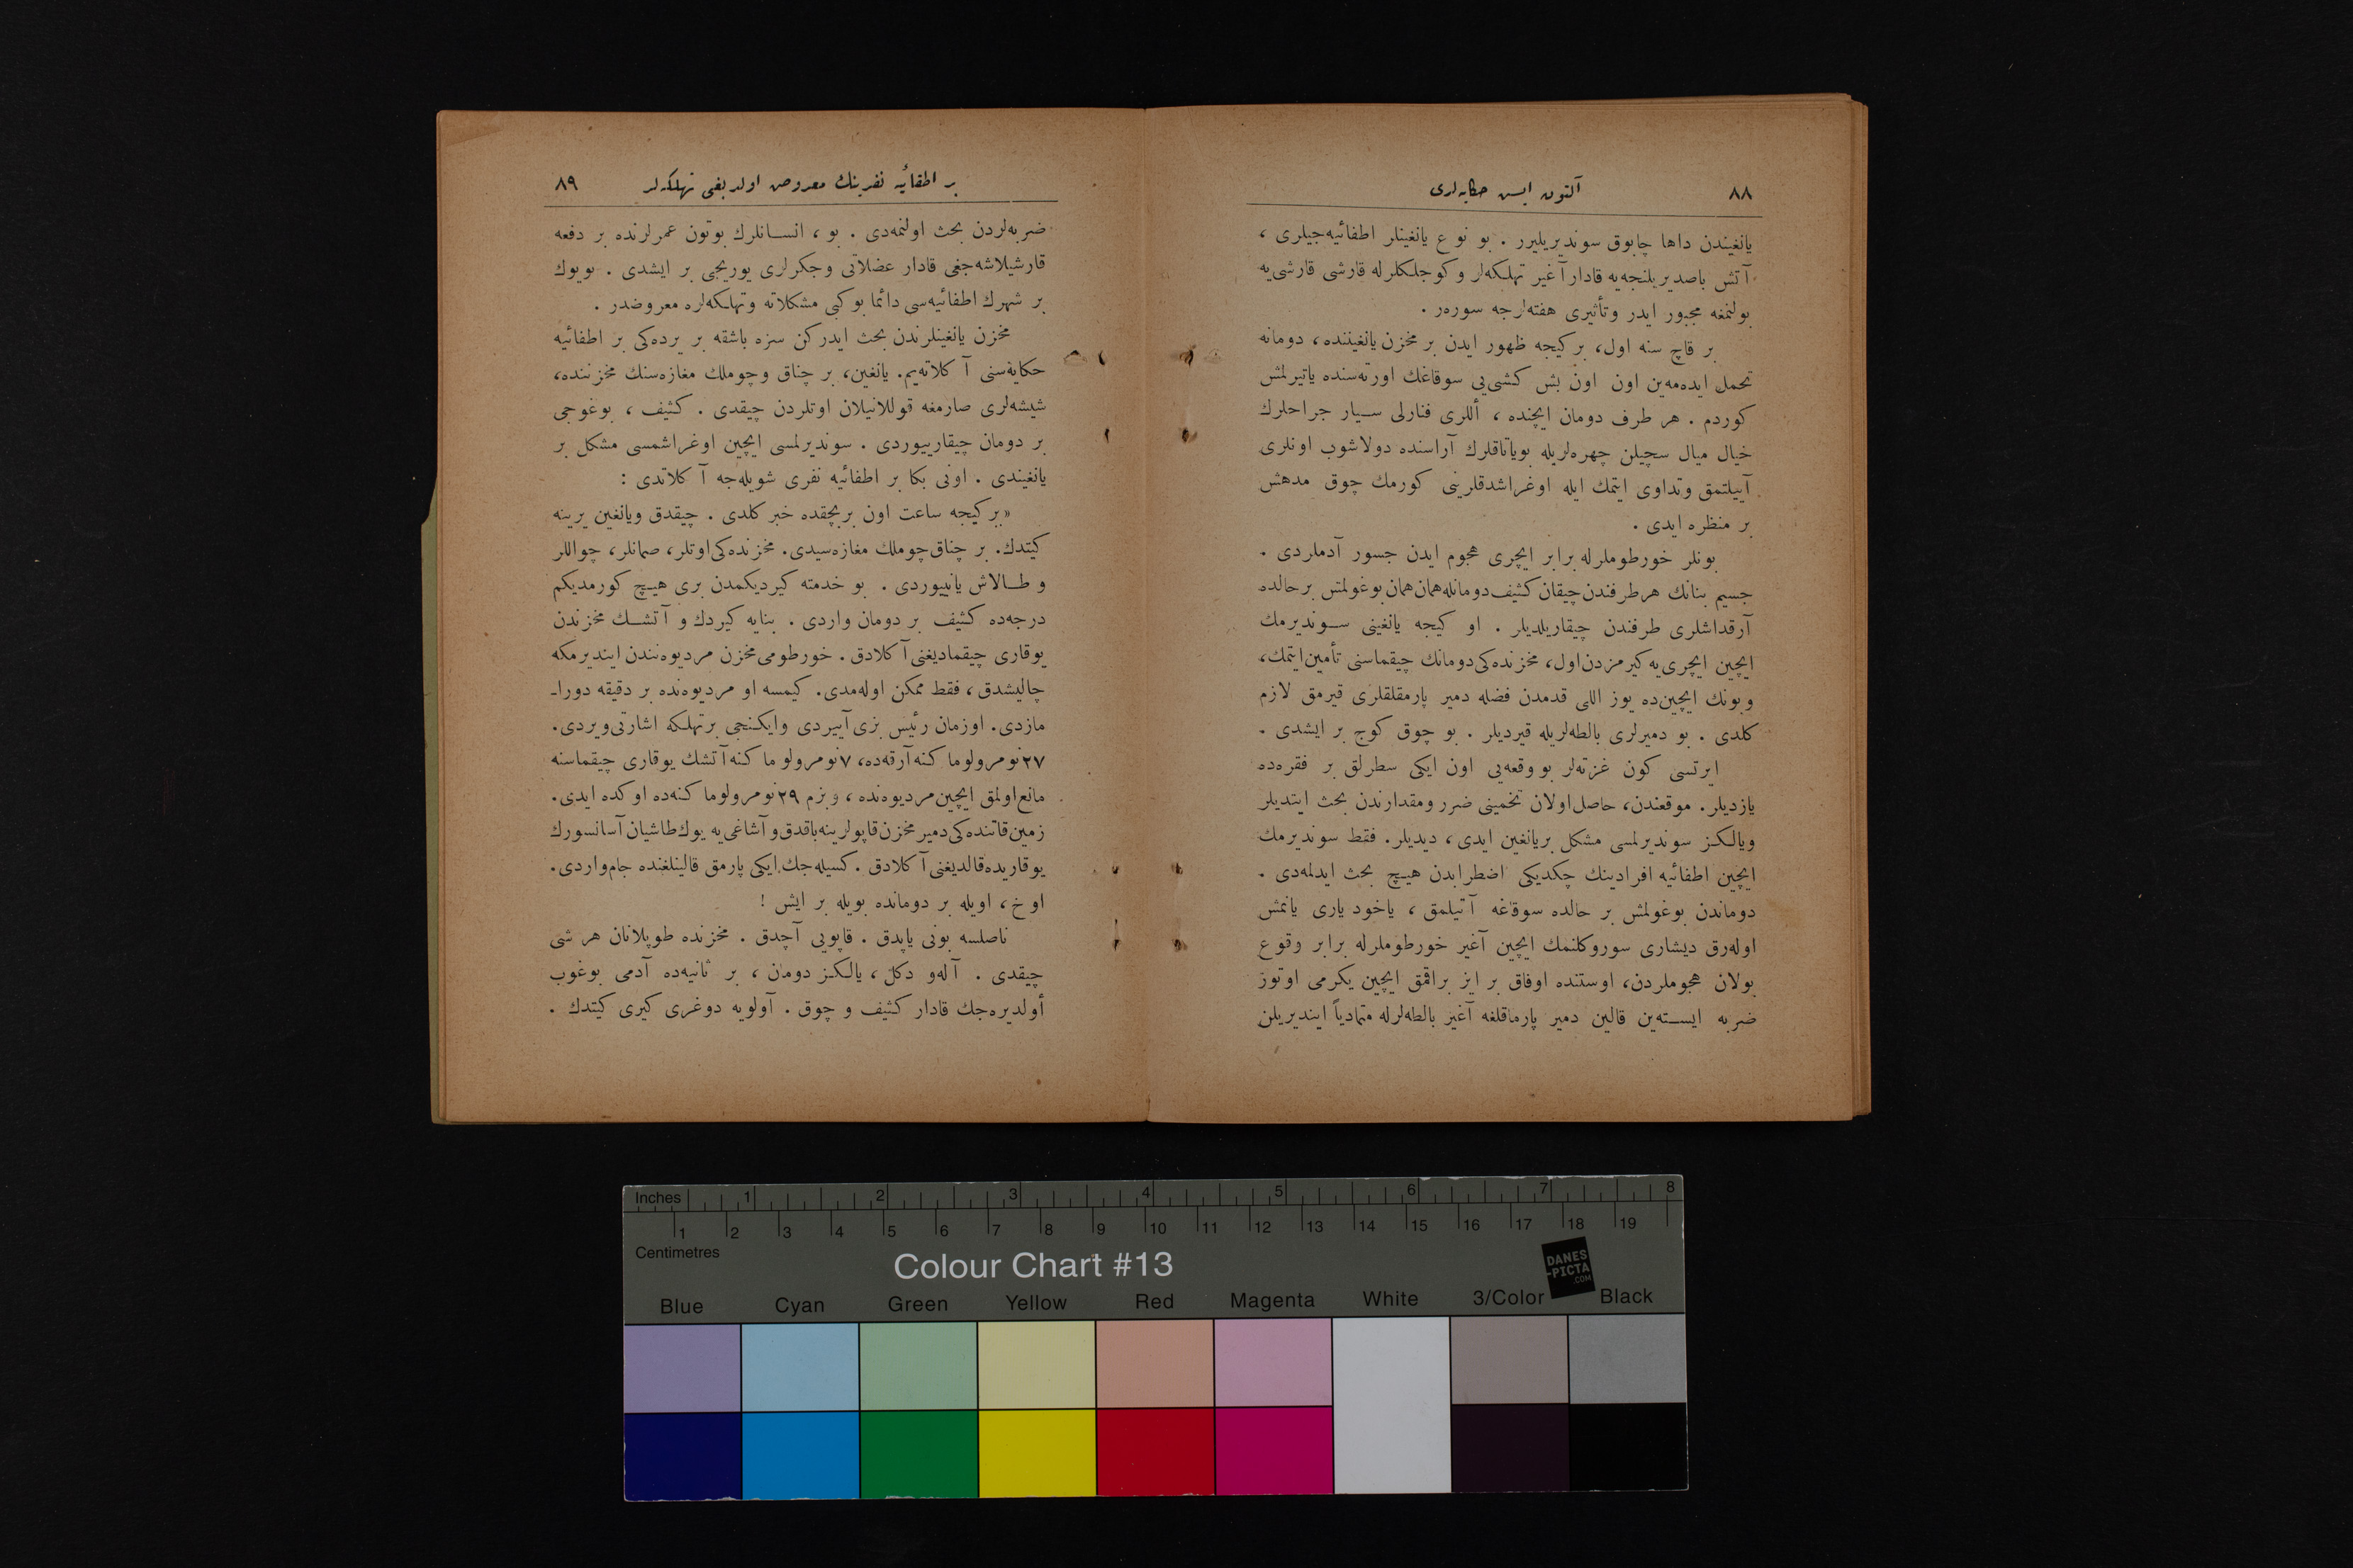 ٨٨
آلتون ايس حكايه‌لرى
يانغيندن داها چابوق سونديريليرر . بو نوع يانغينلر اطفائيه‌جيلرى ،
آتش باصديريلنجه‌يه قادار آغير تهلكه‌لر و كوجلكلرله قارشى قارشى‌يه
بولنمغه مجبور ايدر وتأثيرى هفته‌لرجه سوره‌ر .
بر قاچ سنه اول، بر كيجه ظهور ايدن بر مخزن يانغيننده، دومانه
تحمل ايده‌مه‌ين اون اون بش كشى‌يى سوقاغك اورته‌سنده ياتيرلمش
كوردم . هر طرف دومان ايچنده ، أللرى فنارلى سـيار جراحلرك
خيال ميال سچيلن چهره‌لريله بوياتاقلرك آراسنده دولاشوب اونلرى
آييلتمق وتداوى ايتمك ايله اوغراشدقلرينى كورمك چوق مدهش
بر منظره ايدى .
بونلر خورطوملرله برابر ايچرى هجوم ايدن جسور آدملردى .
جسيم بنانك هرطرفندن چيقان كثيف دومانله همان همان بوغولمش برحالده
آرقداشلرى طرفندن چيقاريلديلر . او كيجه يانغينى سـونديرمك
ايچين ايچرى‌يه كيرمزدن اول، مخزنده‌كى دومانك چيقماسنى تأمين ايتمك،
وبونك ايچين‌ده يوز اللى قدمدن فضله دمير پارمقلقلرى قيرمق لازم
كلدى . بو دميرلرى بالطه‌لريله قيرديلر . بو چوق كوج بر ايشدى .
ايرتسى كون غزته‌لر بو وقعه‌يى اون ايكى سطرلق بر فقره‌ده
يازديلر. موقعندن، حاصل اولان تخمينى ضرر ومقدارندن بحث ايتديلر
ويالكـز سونديرلمسى مشكل بريانغين ايدى، ديديلر. فقط سونديرمك
ايچين اطفائيه افرادينك چكديكى اضطرابدن هيـچ بحث ايدلمه‌دى .
دوماندن بوغولمش بر حالده سوقاغه آتيلمق ، ياخود يارى يانمش
اوله‌رق ديشارى سوروكلنمك ايچين آغير خورطوملرله برابر وقوع
بولان هجوملردن، اوستنده اوفاق بر ايز براقمق ايچين يكرمى اوتوز
ضربه ايسـته‌ين قالين دمير پارماقلغه آغير بالطه‌لرله متمادياً اينديريلن
بر اطفائيه نفرينك معروض اولديغى تهلكه‌لر
٨٩
ضربه‌لردن بحث اولنمه‌دى . بو ، انسـانلرك بوتون عمرلرنده بر دفعه
قارشيلاشه‌جغى قادار عضلاتى وجكرلرى يوريجى بر ايشدى . بويوك
بر شهرك اطفائيه‌سى دائما بو كبى مشكلاته وتهلكه‌لره معروضدر .
مخزن يانغينلرندن بحث ايدركن سزه باشقه بر يرده‌كى بر اطفائيه
حكايه‌سنى آ كلاته‌يم. يانغين، بر چناق وچوملك مغازه‌سنك مخزننده،
شيشه‌لرى صارمغه قوللانيلان اوتلردن چيقدى . كثيف ، بوغوجى
بر دومان چيقارييوردى . سونديرلمسى ايچين اوغراشمسى مشكل بر
يانغيندى . اونى بكا بر اطفائيه نفرى شويله‌جه آ كلاتدى :
«بر كيجه ساعت اون بربچقده خبر كلدى . چيقدق ويانغين يرينه
كيتدك. بر چناق چوملك مغازه‌سيدى. مخزنده‌كى اوتلر، صمانلر، چواللر
و طـالاش يانييوردى . بو خدمته كيرديكمدن برى هيـچ كورمديكم
درجه‌ده كثيف بر دومان واردى . بنايه كيردك و آتشـك مخزندن
يوقارى چيقماديغنى آ كلادق . خورطومى مخزن مرديوه‌نندن اينديرمكه
چاليشدق ، فقط ممكن اوله‌مدى. كيمسه او مرديوه‌نده بر دقيقه دورا-
مازدى. اوزمان رئيس بزى آييردى وايكنجى برتهلكه اشارتى ويردى.
٢٧ نومرولو ماكنه آرقه‌ده، ٧ نومرولو ماكنه آتشك يوقارى چيقماسنه
مانع اولمق ايچين مرديوه‌نده ، وبزم ٢٩ نومرولو ماكنه‌ده اوكده ايدى.
زمين قاتنده‌كى دمير مخزن قاپولرينه باقدق و آشاغى‌يه يوك طاشيان آسانسورك
يوقاريده قالديغنى آ كلادق . كسيله‌جك ايكى پارمق قالينلغنده جام واردى.
اوخ ، اويله بر دومانده بويله بر ايش !
ناصلسه بونى ياپدق . قاپويى آچدق . مخزنده طوپلانان هر شى
چيقدى . آله‌و دكل ، يالكـز دومان ، بر ثانيه‌ده آدمى بوغوب
أولديره‌جك قادار كثيف و چوق . آولويه دوغرى كيرى كيتدك .
Inches 1 2 3 4 5 6 7 8
1 2 3 4 5 6 7 8 9 10 11 12 13 14 15 16 17 18 19
Centimetres
Colour Chart #13
DANES
-PICTA
.COM
Blue Cyan Green Yellow Red Magenta White 3/Color Black